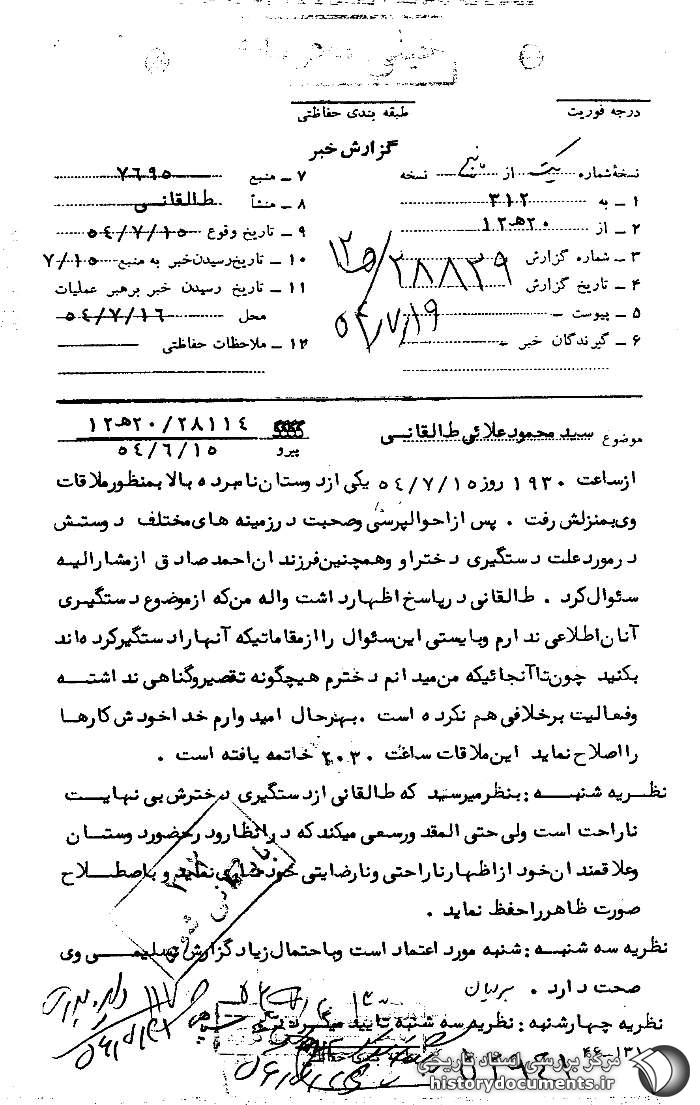 خیلی محرمانه
درجه فوریت
طبقه بندی حفاظتی
گزارش خبر
نسخهٔ شماره یک از پنج نسخه
۷ـ منبع ۷۶۹۵
۱ـ به ۳۱۲
۸ـ منشأ طالقانی
۲ـ از ۲۰هـ۱۲
۹ـ تاریخ وقوع ۵۴/۷/۱۵
۳ـ شماره گزارش ۱۲ﻫ/۲۸۸۲۹
۱۰ـ تاریخ رسیدن خبر به منبع ۷/۱۵
۴ـ تاریخ گزارش ۵۴/۷/۱۹
۱۱ـ تاریخ رسیدن خبر برهبر عملیات
محل ۵۴/۷/۱۶
۵ـ پیوست ـ
۶ـ گیرندگان خبر ـ
۱۲ـ ملاحظات حفاظتی
موضوع سید محمود علائی طالقانی
پیرو ۲۸۱۱۴/۲۰هـ۱۲
۵۴/۶/۱۵
ازساعت ۱۹۳۰ روز ۵۴/۷/۱۵ یکی ازدوستان نامبرده بالا بمنظور ملاقات
وی بمنزلش رفت . پس ازاحوالپرسی وصحبت درزمینه های مختلف دوستش
درمورد علت دستگیری دختراو وهمچنین فرزندان احمد صادق ازمشارالیه
سئوال کرد . طالقانی درپاسخ اظهارداشت واله من که ازموضوع دستگیری
آنان اطلاعی ندارم وبایستی این سئوال را ازمقاماتیکه آنهارا دستگیر کرده اند
بکنید چون تا آنجائیکه من میدانم دخترم هیچگونه تقصیر وگناهی نداشته
وفعالیت برخلافی هم نکرده است . بهرحال امیدوارم خدا خودش کارها
را اصلاح نماید این ملاقات ساعت ۲۰۳۰ خاتمه یافته است .
نظریه شنبه : بنظر میرسید که طالقانی ازدستگیری دخترش بی نهایت
ناراحت است ولی حتی المقدور سعی میکند که درانظار ودرحضور دوستان
وعلاقمندان خود ازاظهار ناراحتی ونارضایتی خودداری نماید وباصطلاح
صورت ظاهر را حفظ نماید .
نظریه سه شنبه : شنبه مورد اعتماد است وباحتمال زیاد گزارش تسلیمی وی
صحت دارد .
نظریه چهارشنبه : نظریه سه شنبه تایید میگردد
مرکز بررسی اسناد تاریخی
historydocuments.ir